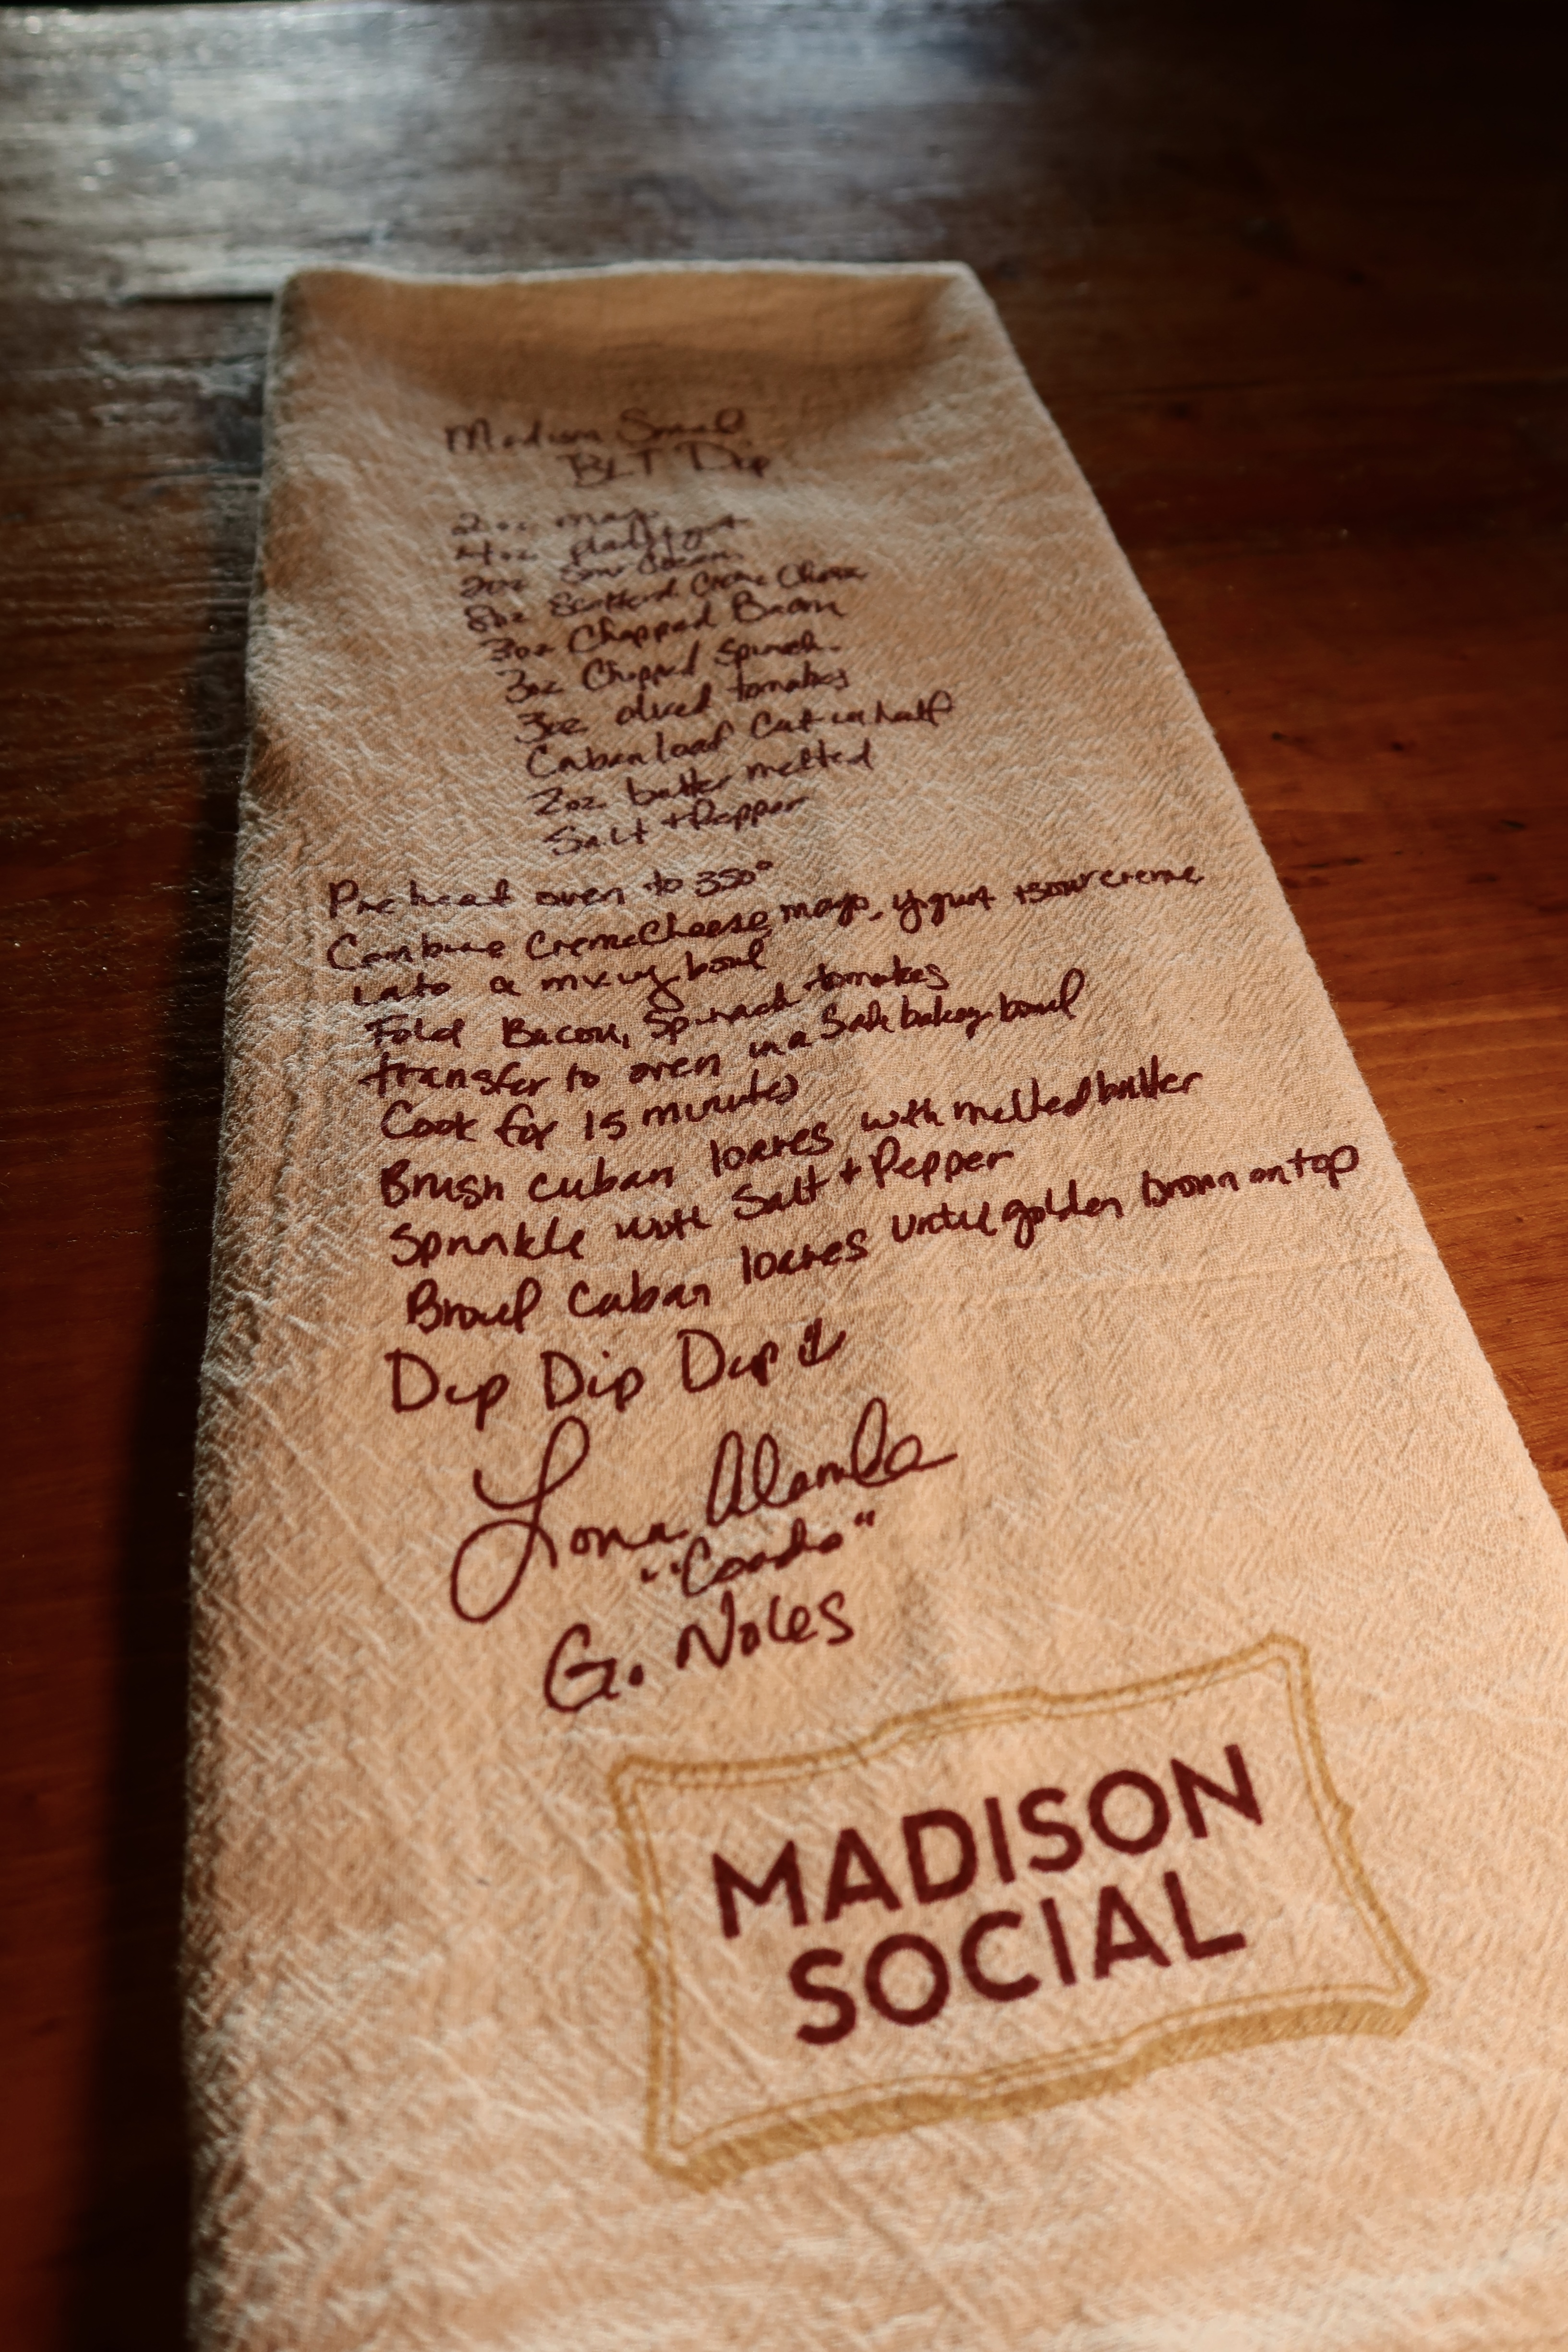 Madison Social
BLT Dip
2 oz mayo
4 oz plain yogurt
2oz Sour Cream
8oz Softened Creme Cheese
3oz Chopped Bacon
3oz Chopped Spinach
3oz diced tomatoes
Cuban loaf Cut in half
2oz. butter melted
Salt + Pepper
Preheat oven to 350°
Combine Creme Cheese, mayo, yogurt + Sour creme
into a mixing bowl
Fold Bacon, Spinach tomatoes
transfer to oven in a Safe baking bowl
Cook for 15 minutes
Brush cuban loaves with melted butter
Sprinkle with Salt + Pepper
Broil Cuban loaves until golden brown on top
Dip Dip Dip
Lorna Alamba
G. Noles
MADISON
SOCIAL